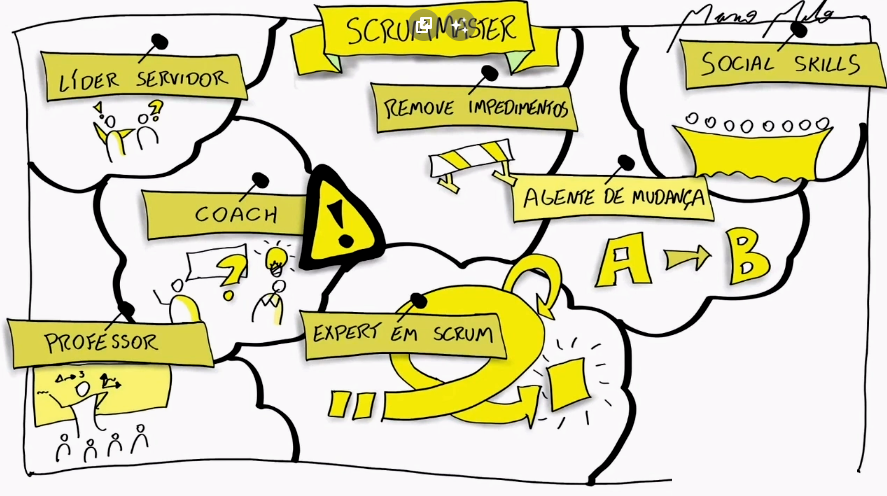 SCRUMMASTER
LÍDER SERVIDOR
REMOVE IMPEDIMENTOS
SOCIAL SKILLS
COACH
AGENTE DE MUDANÇA
A → B
PROFESSOR
EXPERT EM SCRUM